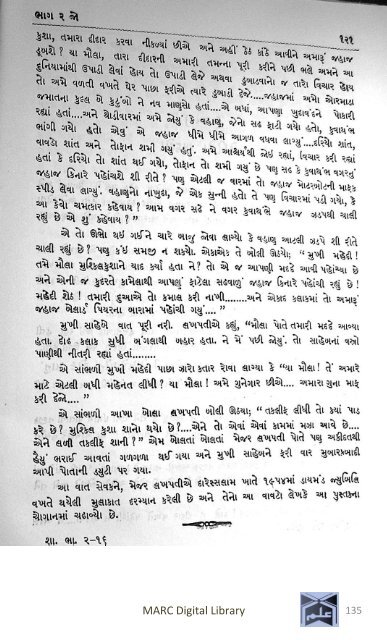 ભાગ ૨ જો
૧૨૧
કુશા, તમારા દીદાર કરવા નીકળ્યાં છીએ અને અહીં ઠેઠ કાંઠે આવીને અમારૂં જહાજ
ડૂબશે? યા મૌલા, તારા દીદારની અમારી તમન્ના પૂરી કરીને પછી ભલે અમને આ
દુનિયામાંથી ઉપાડી લેવાં હોય તો ઉપાડી લેજે અથવા ડુબાડવાનો જ તારો વિચાર હોય
તો અમે વળતી વખતે ઘેર પાછા ફરીએ ત્યારે ડુબાડી દેજે.....જહાજમાં અમો એરમાડા
જમાતના કુલ્લે બે કુટુંબો ને નવ માણસો હતાં....એ બધાં, આપણા ખુદાવંદને પોકારી
રહ્યાં હતાં....અને થોડીવારમાં અમે જોયું કે વહાણ, જેનો સઢ ફાટી ગયો હતો, કુવાથંભ
ભાંગી ગયો હતો એવું એ જહાજ ધીમે ધીમે આગળ વધવા લાગ્યું.....દરિયો શાંત,
વાવડો શાંત અને તોફાન શમી ગયું હતું. અમે આશ્ચર્યથી જોઈ રહ્યાં, વિચાર કરી રહ્યાં
હતાં કે દરિયો તો શાંત થઈ ગયો, તોફાન તો શમી ગયું છે પણ સઢ કે કુવાથંભ વગરનું
જહાજ કિનારે પહોંચશે શી રીતે? પણ એટલી જ વારમાં તો જહાજ મોટરબોટની માફક
સ્પીડ લેવા લાગ્યું. વહાણનો નાખુદા, જે એક સુન્ની હતો તે પણ વિચારમાં પડી ગયો, કે
આ કેવો ચમત્કાર કહેવાય? આમ વગર સઢે ને વગર કુવાથંભે જહાજ ઝડપથી ચાલી
રહ્યું છે એ શું કહેવાય?”
એ તો ઊભો થઈ ગઈને ચારે બાજુ જોવા લાગ્યો કે વહાણ આટલી ઝડપે શી રીતે
ચાલી રહ્યું છે? પણ કંઈ સમજી ન શકયો. એકાએક તે બોલી ઊઠયો; “મુખી મહેદી!
તમે મૌલા મુશ્કિલકુશાને યાદ કર્યા હતા ને? તો એ જ આપણી મદદે આવી પહોંચ્યા છે
અને એની જ કુદરતે કામેલાથી આપણું ફાટેલા સઢવાળું જહાજ કિનારે પહોંચી રહ્યું છે!
મહેદી શેઠ! તમારી દુઆએ તો કમાલ કરી નાખી........અને એકાદ કલાકમાં તો અમારૂં
જહાજ બેલાર્ડ પિયરના બારામાં પહોંચી ગયું....”
મુખી સાહેબે વાત પૂરી નરી. લખપતીએ કહ્યું, “મૌલા પોતે તમારી મદદે આવ્યા
હતા. દોઢ કલાક સુધી બંગલાથી બહાર હતા. ને મેં પછી જોયું. તો સાહેબનાં વસ્ત્રો
પાણીથી નીતરી રહ્યાં હતાં........
એ સાંભળી મુખી મહેદી પાછા ઝારો કતાર રોવા લાગ્યા કે “યા મૌલા! તેં અમારે
માટે એટલી બધી મહેનત લીધી? યા મૌલા! અમે ગુનેગાર છીએ.... અમારા ગુના માફ
કરી દેજે....”
એ સાંભળી આખા બોલા લખપતી બોલી ઊઠયા; “તકલીફ લીધી તો કયાં પાડ
કરે છે? મુશ્કિલ કુશા શાનો થયો છે?....એને તો એવાં એવાં કામમાં મઝા આવે છે....
એને વળી તકલીફ શાની?” એમ બોલતાં બોલતાં મેજર લખપતી પોતે પણ અકીદતથી
હૈયું ભરાઈ આવતાં ગળગળા થઈ ગયા અને મુખી સાહેબને ફરી વાર મુબારકબાદી
આપી પોતાની ડયુટી પર ગયા.
આ વાત સેવકને, મેજર લખપતીએ દારેસ્સલામ ખાતે ૧૯૫૪માં ડાયમંડ જ્યુબિલિ
વખતે થયેલી મુલાકાત દરમ્યાન કરેલી છે અને તેનો આ વાવડો લેખકે આ પુસ્તકના
ચોગાનમાં ચઢાવ્યો છે.
શા. ભા. ૨-૧૬
MARC Digital Library
135